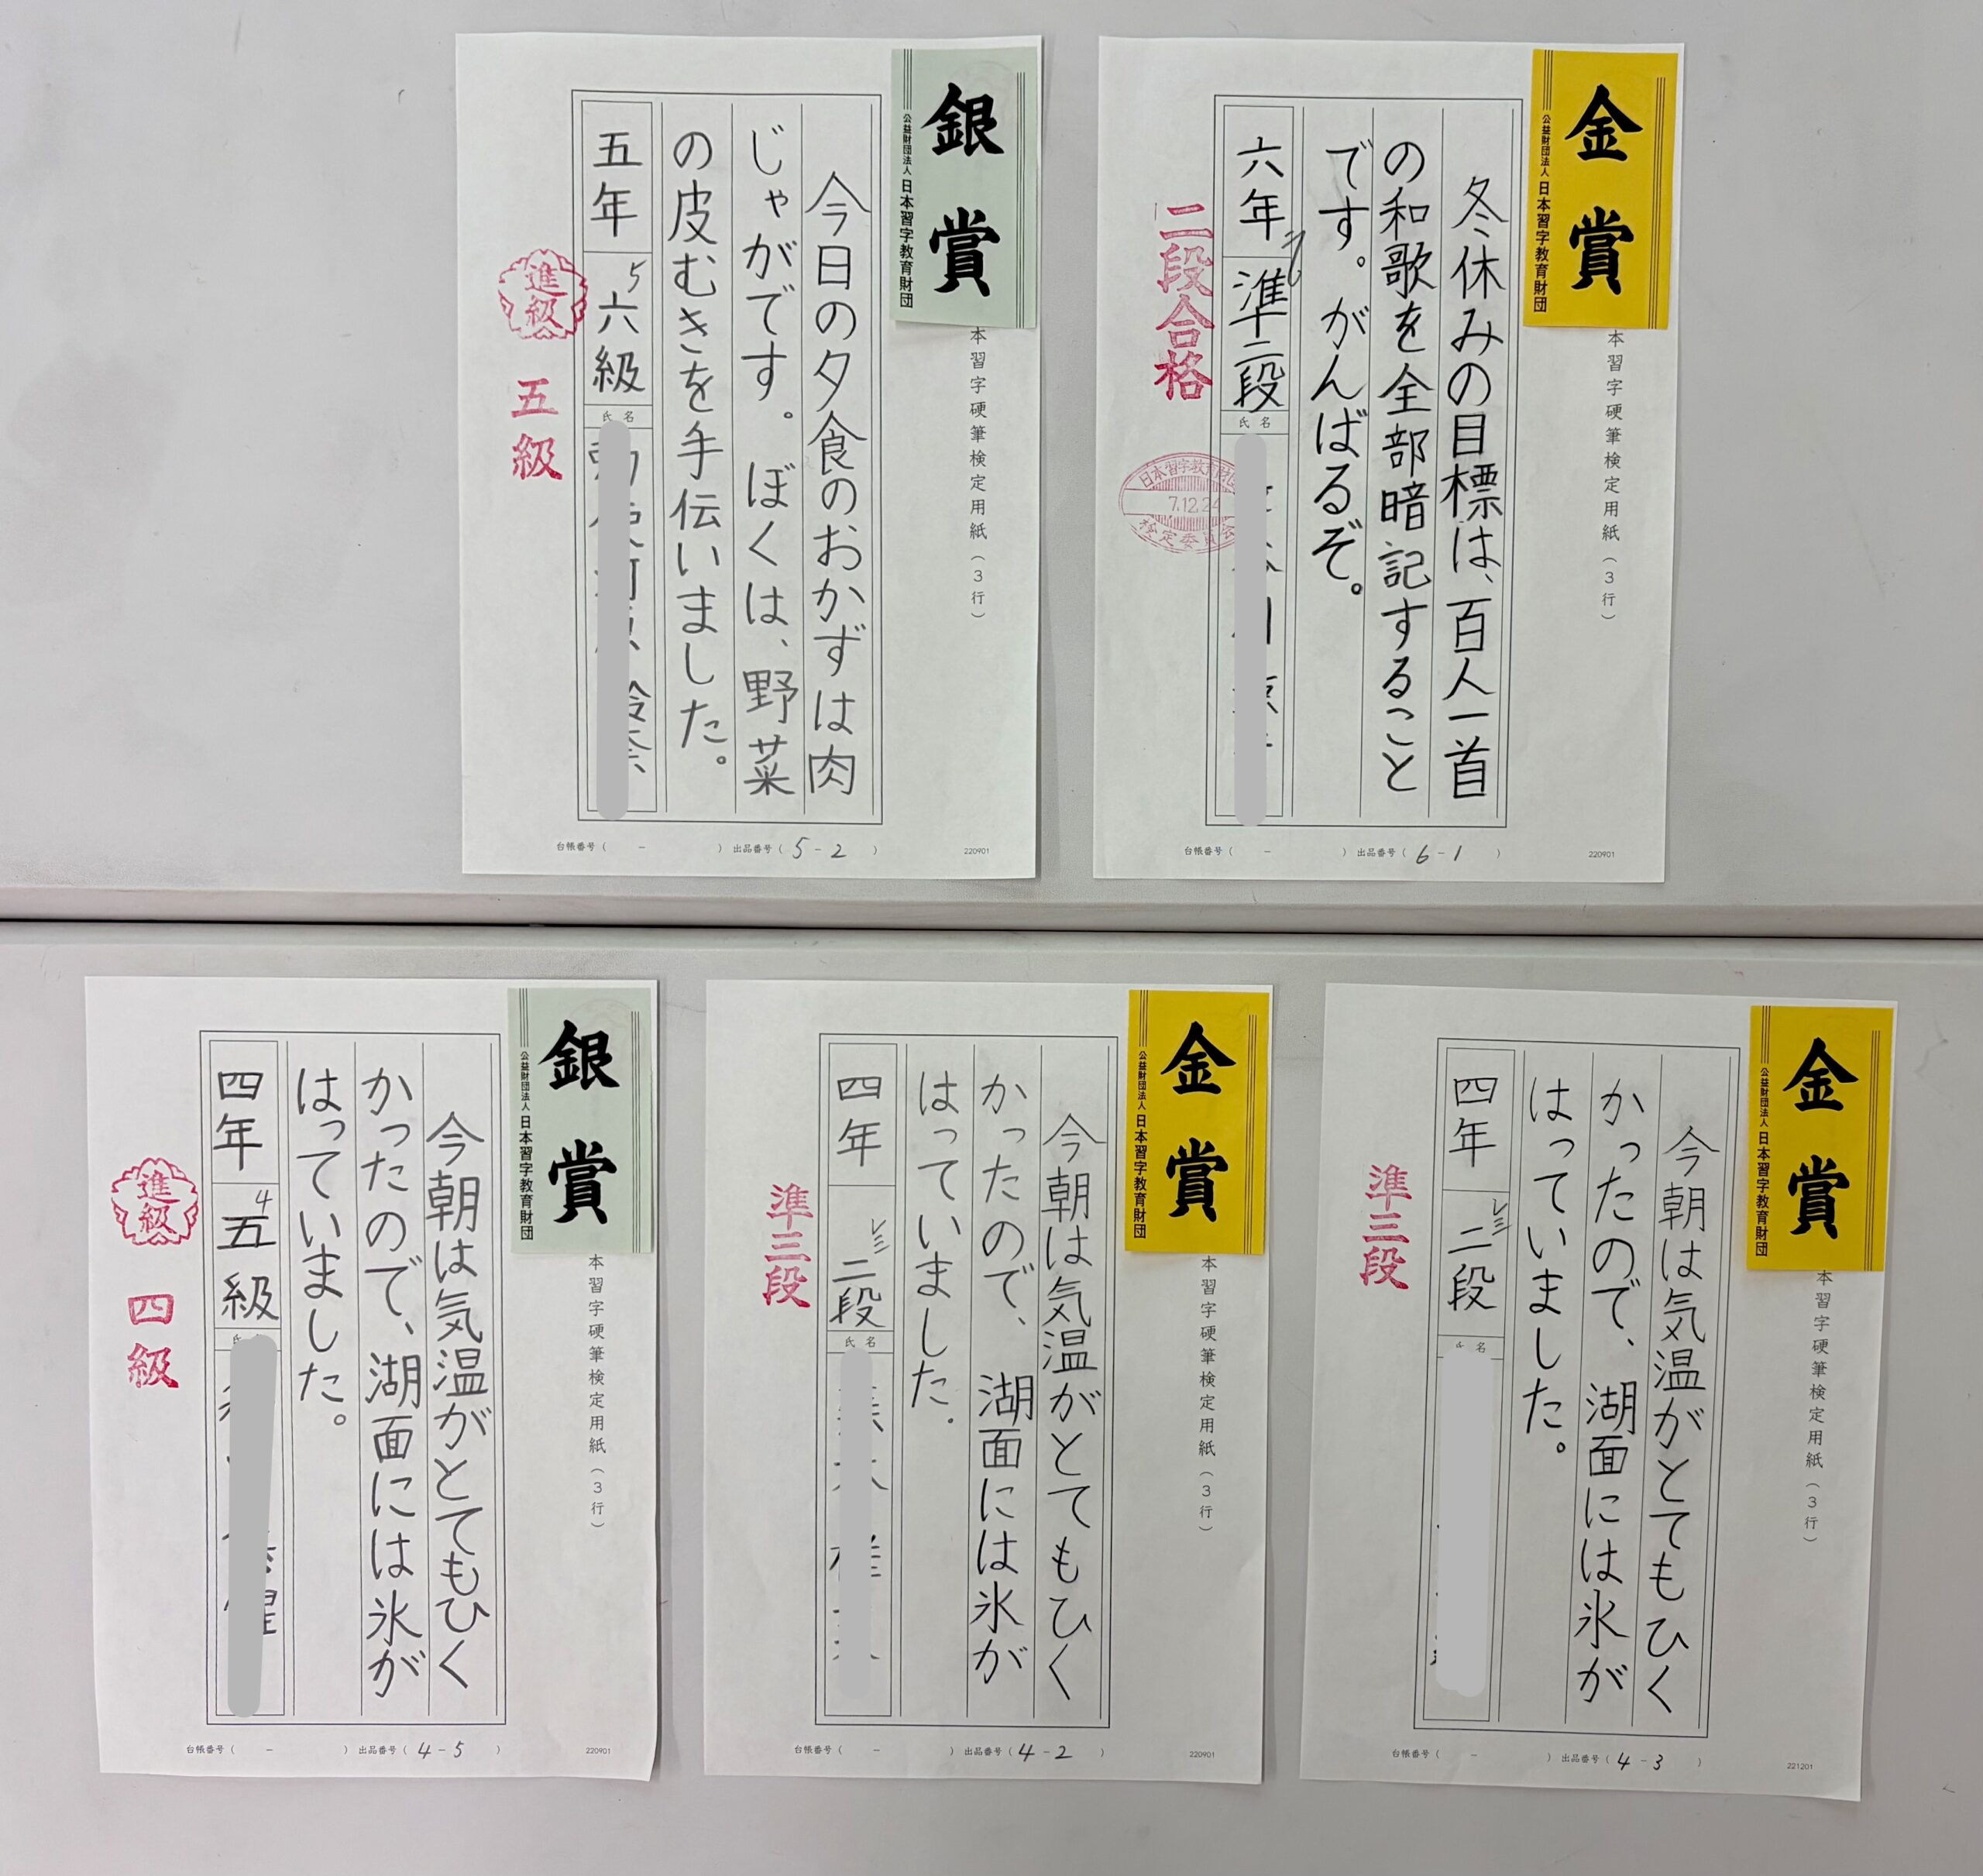 金賞
公益財団法人 日本習字教育財団
本習字硬筆検定用紙(3行)
冬休みの目標は、百人一首
の和歌を全部暗記すること
です。がんばるぞ。
六年 準二段
氏名
二段合格
日本習字教育財団
7.12.24
検定委員会
台帳番号( - ) 出品番号(6-1)
220901
銀賞
公益財団法人 日本習字教育財団
本習字硬筆検定用紙(3行)
今日の夕食のおかずは肉
じゃがです。ぼくは、野菜
の皮むきを手伝いました。
五年 六級
5
氏名
進級
五級
台帳番号( - ) 出品番号(5-2)
220901
金賞
公益財団法人 日本習字教育財団
本習字硬筆検定用紙(3行)
今朝は気温がとてもひく
かったので、湖面には氷が
はっていました。
四年 二段
名
準三段
台帳番号( - ) 出品番号(4-3)
221201
金賞
公益財団法人 日本習字教育財団
本習字硬筆検定用紙(3行)
今朝は気温がとてもひく
かったので、湖面には氷が
はっていました.
四年 二段
氏名
準三段
台帳番号( - ) 出品番号(4-2)
220901
銀賞
公益財団法人 日本習字教育財団
本習字硬筆検定用紙(3行)
今朝は気温がとてもひく
かったので、湖面には氷が
はっていました。
四年 五級
4
進級
四級
台帳番号( - ) 出品番号(4-5)
220901